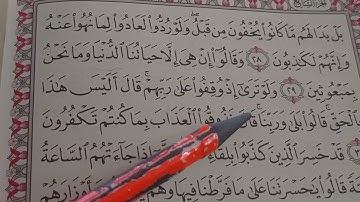 الجزء السابع
بَلْ بَدَا لَهُم مَّا كَانُوا۟ يُخْفُونَ مِن قَبْلُ ۖ وَلَوْ رُدُّوا۟ لَعَادُوا۟ لِمَا نُهُوا۟ عَنْهُ
وَإِنَّهُمْ لَكَٰذِبُونَ ٢٨ وَقَالُوٓا۟ إِنْ هِىَ إِلَّا حَيَاتُنَا ٱلدُّنْيَا وَمَا نَحْنُ
بِمَبْعُوثِينَ ٢٩ وَلَوْ تَرَىٰٓ إِذْ وُقِفُوا۟ عَلَىٰ رَبِّهِمْ ۚ قَالَ أَلَيْسَ هَٰذَا
بِٱلْحَقِّ ۚ قَالُوا۟ بَلَىٰ وَرَبِّنَا ۚ قَالَ ٱلْعَذَابَ بِمَا كُنتُمْ تَكْفُرُونَ
قَدْ خَسِرَ ٱلَّذِينَ كَذَّبُوا۟ بِلِقَآءِ إِذَا جَآءَتْهُمُ ٱلسَّاعَةُ
قَالُوا۟ يَٰحَسْرَتَنَا عَلَىٰ مَا فَرَّطْنَا فِيهَا وَهُمْ أَوْزَارَهُمْ